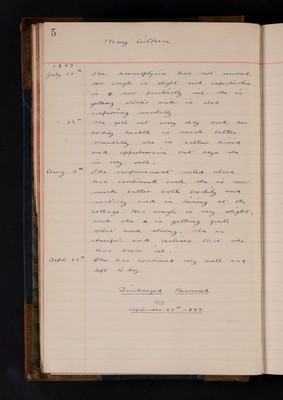 5
Mary
1897
July 20th The haemoptysis has not recurred
her cough is slight and expectoration
is, & now practically nil. She is
getting stouter and is also
improving mentally.
" 27th She gets out every day and her
bodily health is much better,
mentally she is rather timid
and apprehensive but says she
is very well.
Aug. 3rd The improvement noted above
has continued and she is now
much better both bodily and
mentally and is living at the
cottage. Her cough is very slight,
and she is getting quite
stout and strong. She is
cheerful and realises that she
has been ill.
Sept 25th She has continued very well and
left to day.
Discharged Recovered
September 25th 1897